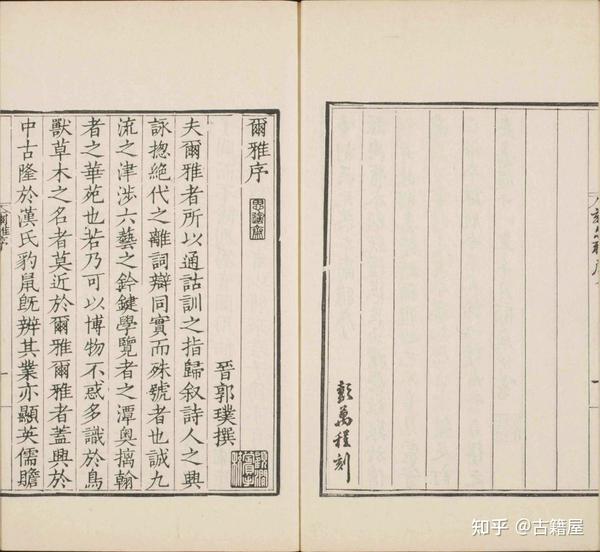 彭萬程刻
爾雅序
晉郭璞撰
夫爾雅者所以通詁訓之指歸叙詩人之興
詠揔絶代之離詞辯同實而殊號者也誠九
流之津涉六藝之鈐鍵學覽者之潭奧摛翰
者之華苑也若乃可以博物不惑多識於鳥
獸草木之名者莫近於爾雅爾雅者蓋興於
中古隆於漢氏豹鼠旣辨其業亦顯英儒贍
知乎 @古籍屋